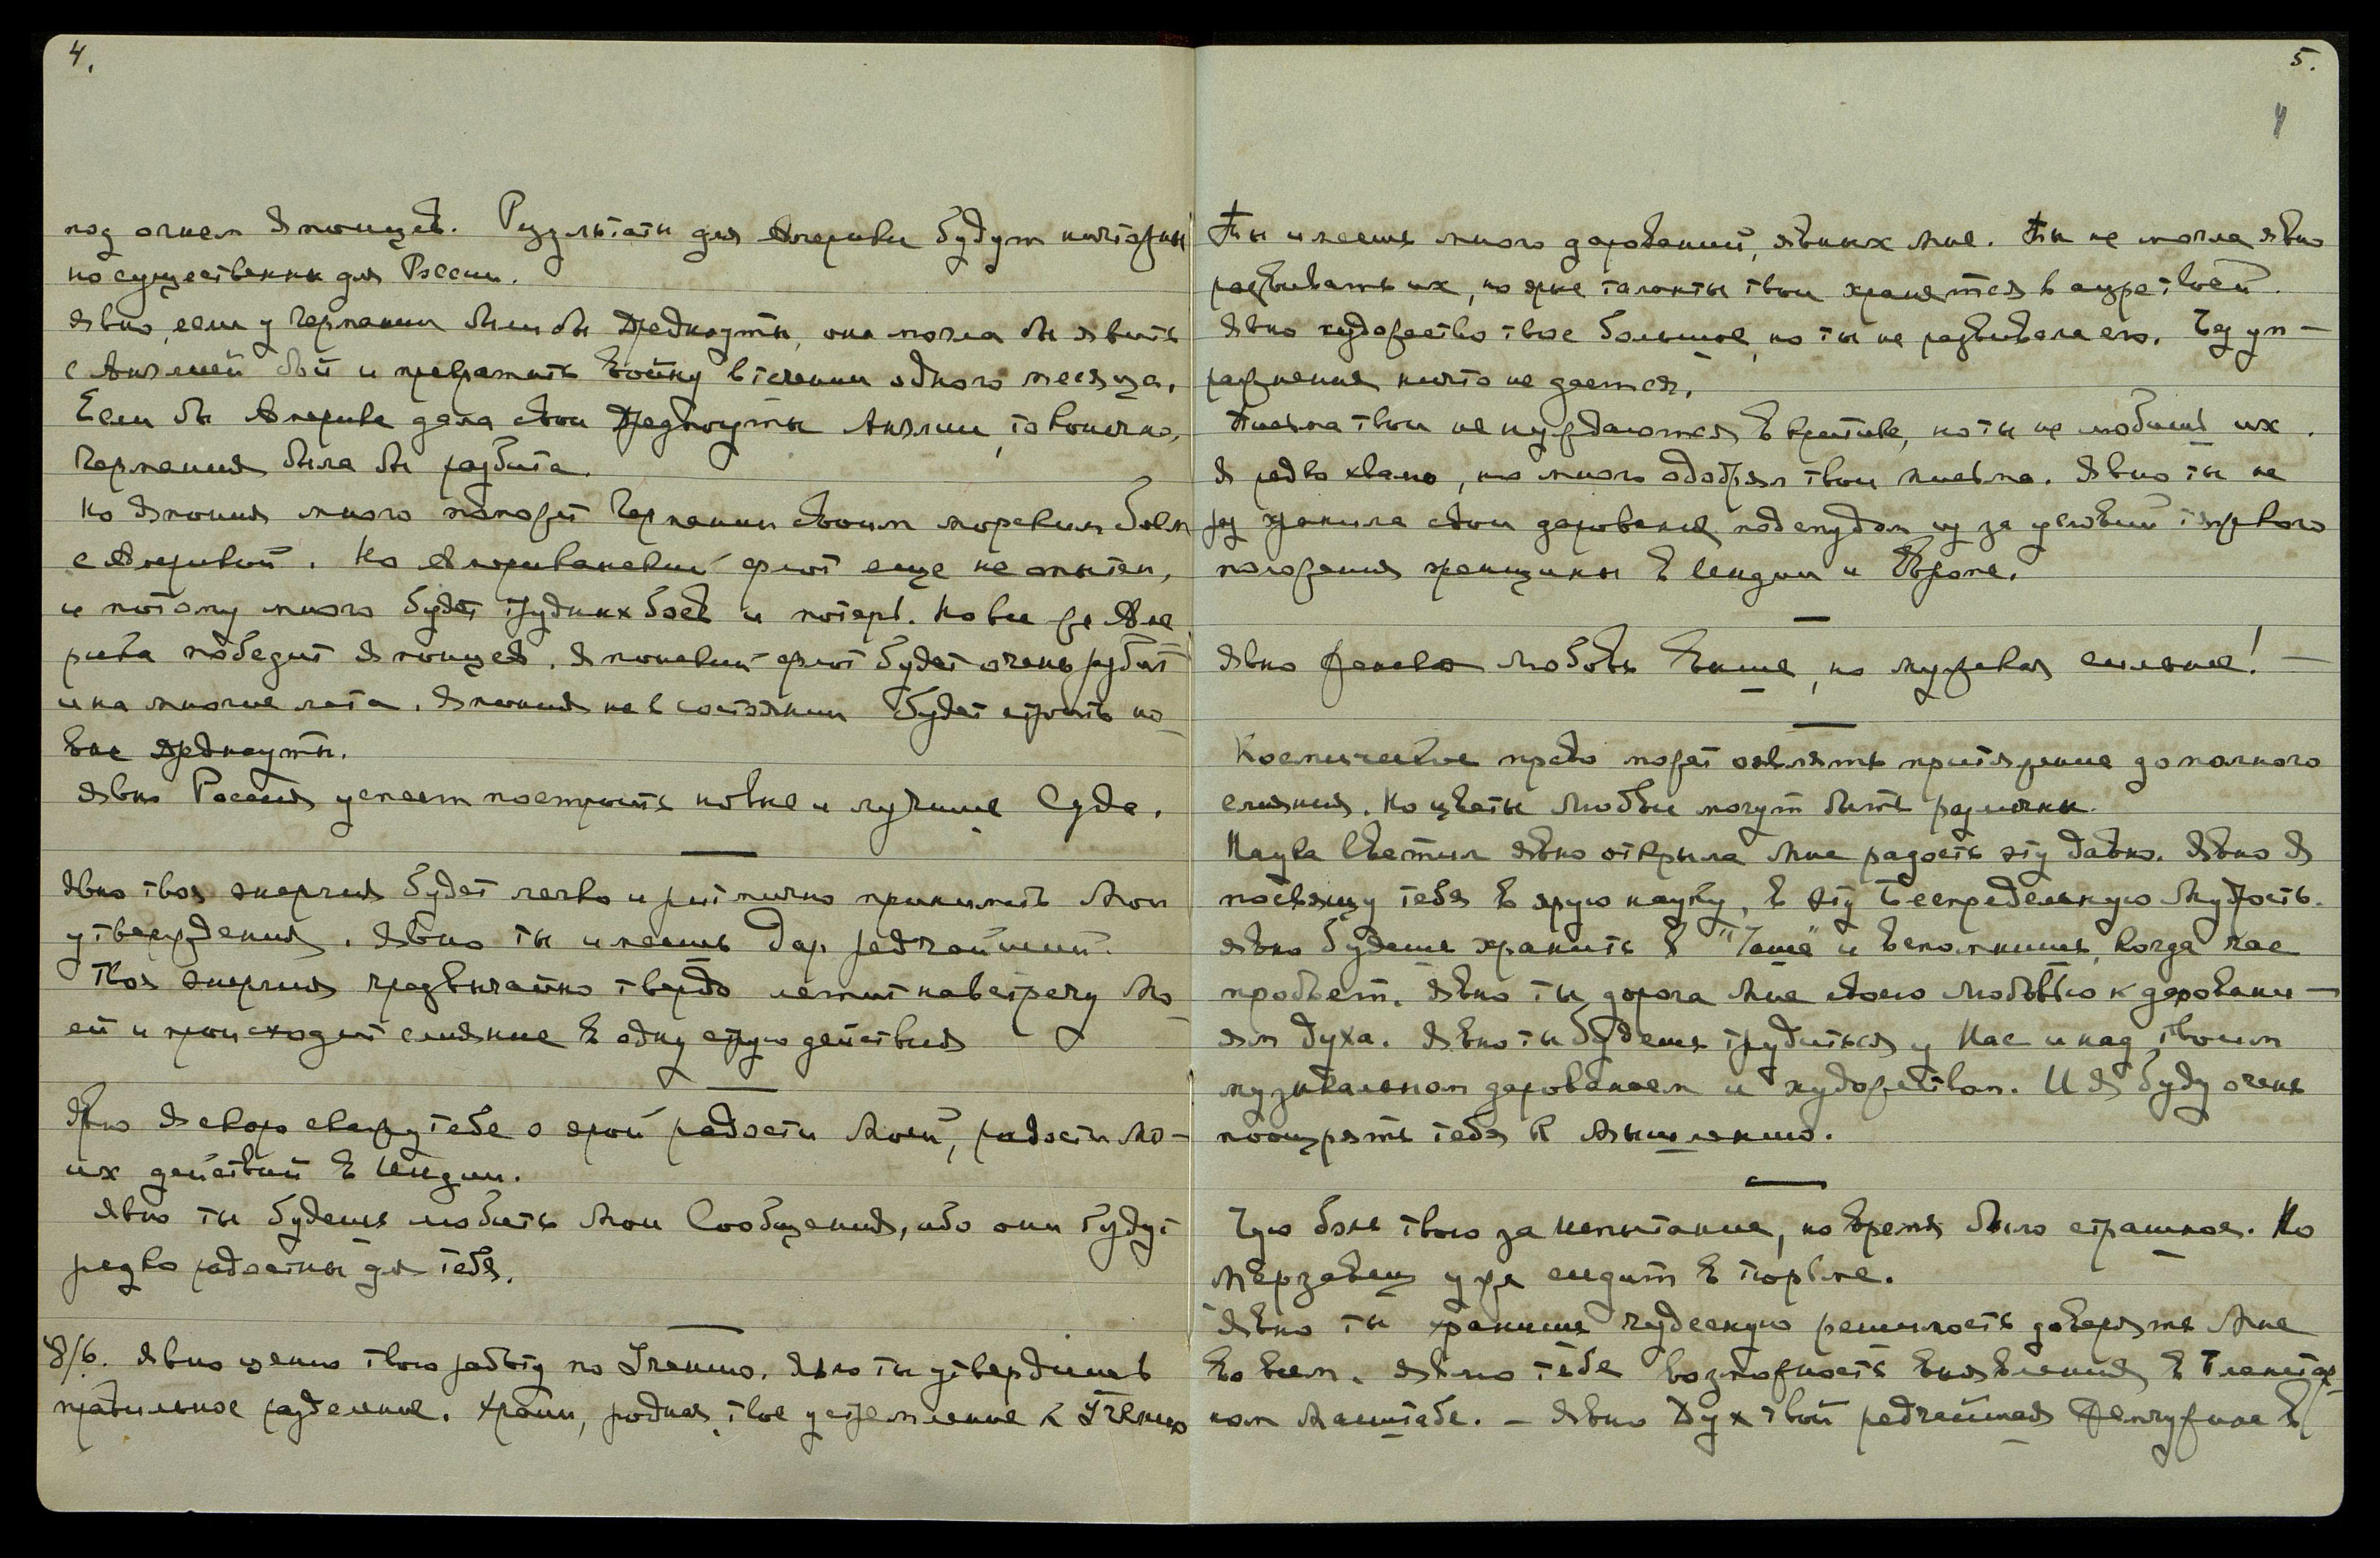 4.
под огнем Японцев. Результаты для Америки будут ничтожны
но существенны для России.
Явно, если у Германии были бы Дредноуты, она могла бы явить
с Англией бой и прекратить Войну в течении одного месяца.
Если бы Америка дала свои Дредноуты Англии, то конечно,
Германия была бы разбита.
Но Япония много поможет Германии своим морским боем
с Америкой. Но Американский флот еще не опытен,
и потому много будет трудных боев и потерь. Но все же Аме
рика победит Японцев. Японский флот будет очень разбит
и на многие лета. Япония не в состоянии будет строить но-
вые дредноуты.
Явно Россия успеет построить новые и лучшие Суда.
Явно твоя энергия будет легко и ритмично принимать Мои
утверждения. Явно ты имеешь Дар редчайший.
Твоя энергия чрезвычайно твердо летит навстречу Мо-
ей и происходит слияние в одну струю действия
Явно Я скоро скажу тебе о ярой радости Моей, радости Мо-
их действий в Индии.
Явно ты будешь любить Мои Сообщения, ибо они будут
редко радостны для тебя.
8/6. Явно ценю твою работу по Учению. Явно ты утвердишь
правильное разделение. Храни, родная, твое устремление к Учению
5.
4
Ты имеешь много дарований, явных Мне. Ты не могла явно
развивать их, но ярые таланты твои хранятся в ауре твоей.
Явно художество твое большое, но ты не развивала его. Без уп-
ражнения ничто не дается.
Письма твои не нуждаются в критике, но ты не любишь их.
Я редко хвалю, но много одобрял твои письма. Явно ты не
раз хранила свои дарования под спудом из за условий тяжкого
положения женщины в Индии и Европе.
Явно Женская Любовь выше, но мужская сильнее!
Космическое право может оявлять притяжение до полного
слияния. Но цветы Любви могут быть различны.
Наука Светил явно открыла Мне радость эту давно. Явно Я
посвящу тебя в ярую науку, в эту Беспредельную Мудрость.
Явно будешь хранить в "Чаше" и вспомнишь, когда час
пробьет. Явно ты дорога Мне своею любовью к даровани-
ям духа. Явно ты будешь трудиться у Нас и над твоим
музыкальным дарованием и художеством. И Я буду очень
поощрять тебя к Мышлению.
Чую боль твою за испытание, но время было страшное. Но
Мерзавец уже сидит в тюрьме.
Явно ты хранишь чудесную решимость доверять Мне
во всем. Явлю тебе возможность выявления в Планетар-
ном Масштабе. – Явно Дух твой редчайшая Жемчужина в